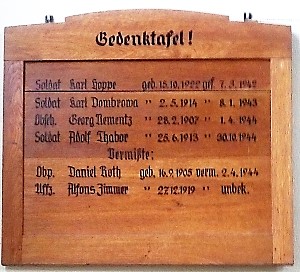 Gedenktafel!
Soldat Karl Hoppe geb. 15.10.1922 gef. 7.3.1942
Soldat Karl Dombrowa " 2.5.1914 " 8.1.1943
Obsch. Georg Nementz " 28.2.1907 " 1.4.1944
Soldat Adolf Thabor " 25.6.1913 " 30.10.1944
Vermißte:
Obp. Daniel Roth geb. 16.9.1905 verm. 2.4.1944
Uffz. Alfons Zimmer " 27.12.1919 " unbek.